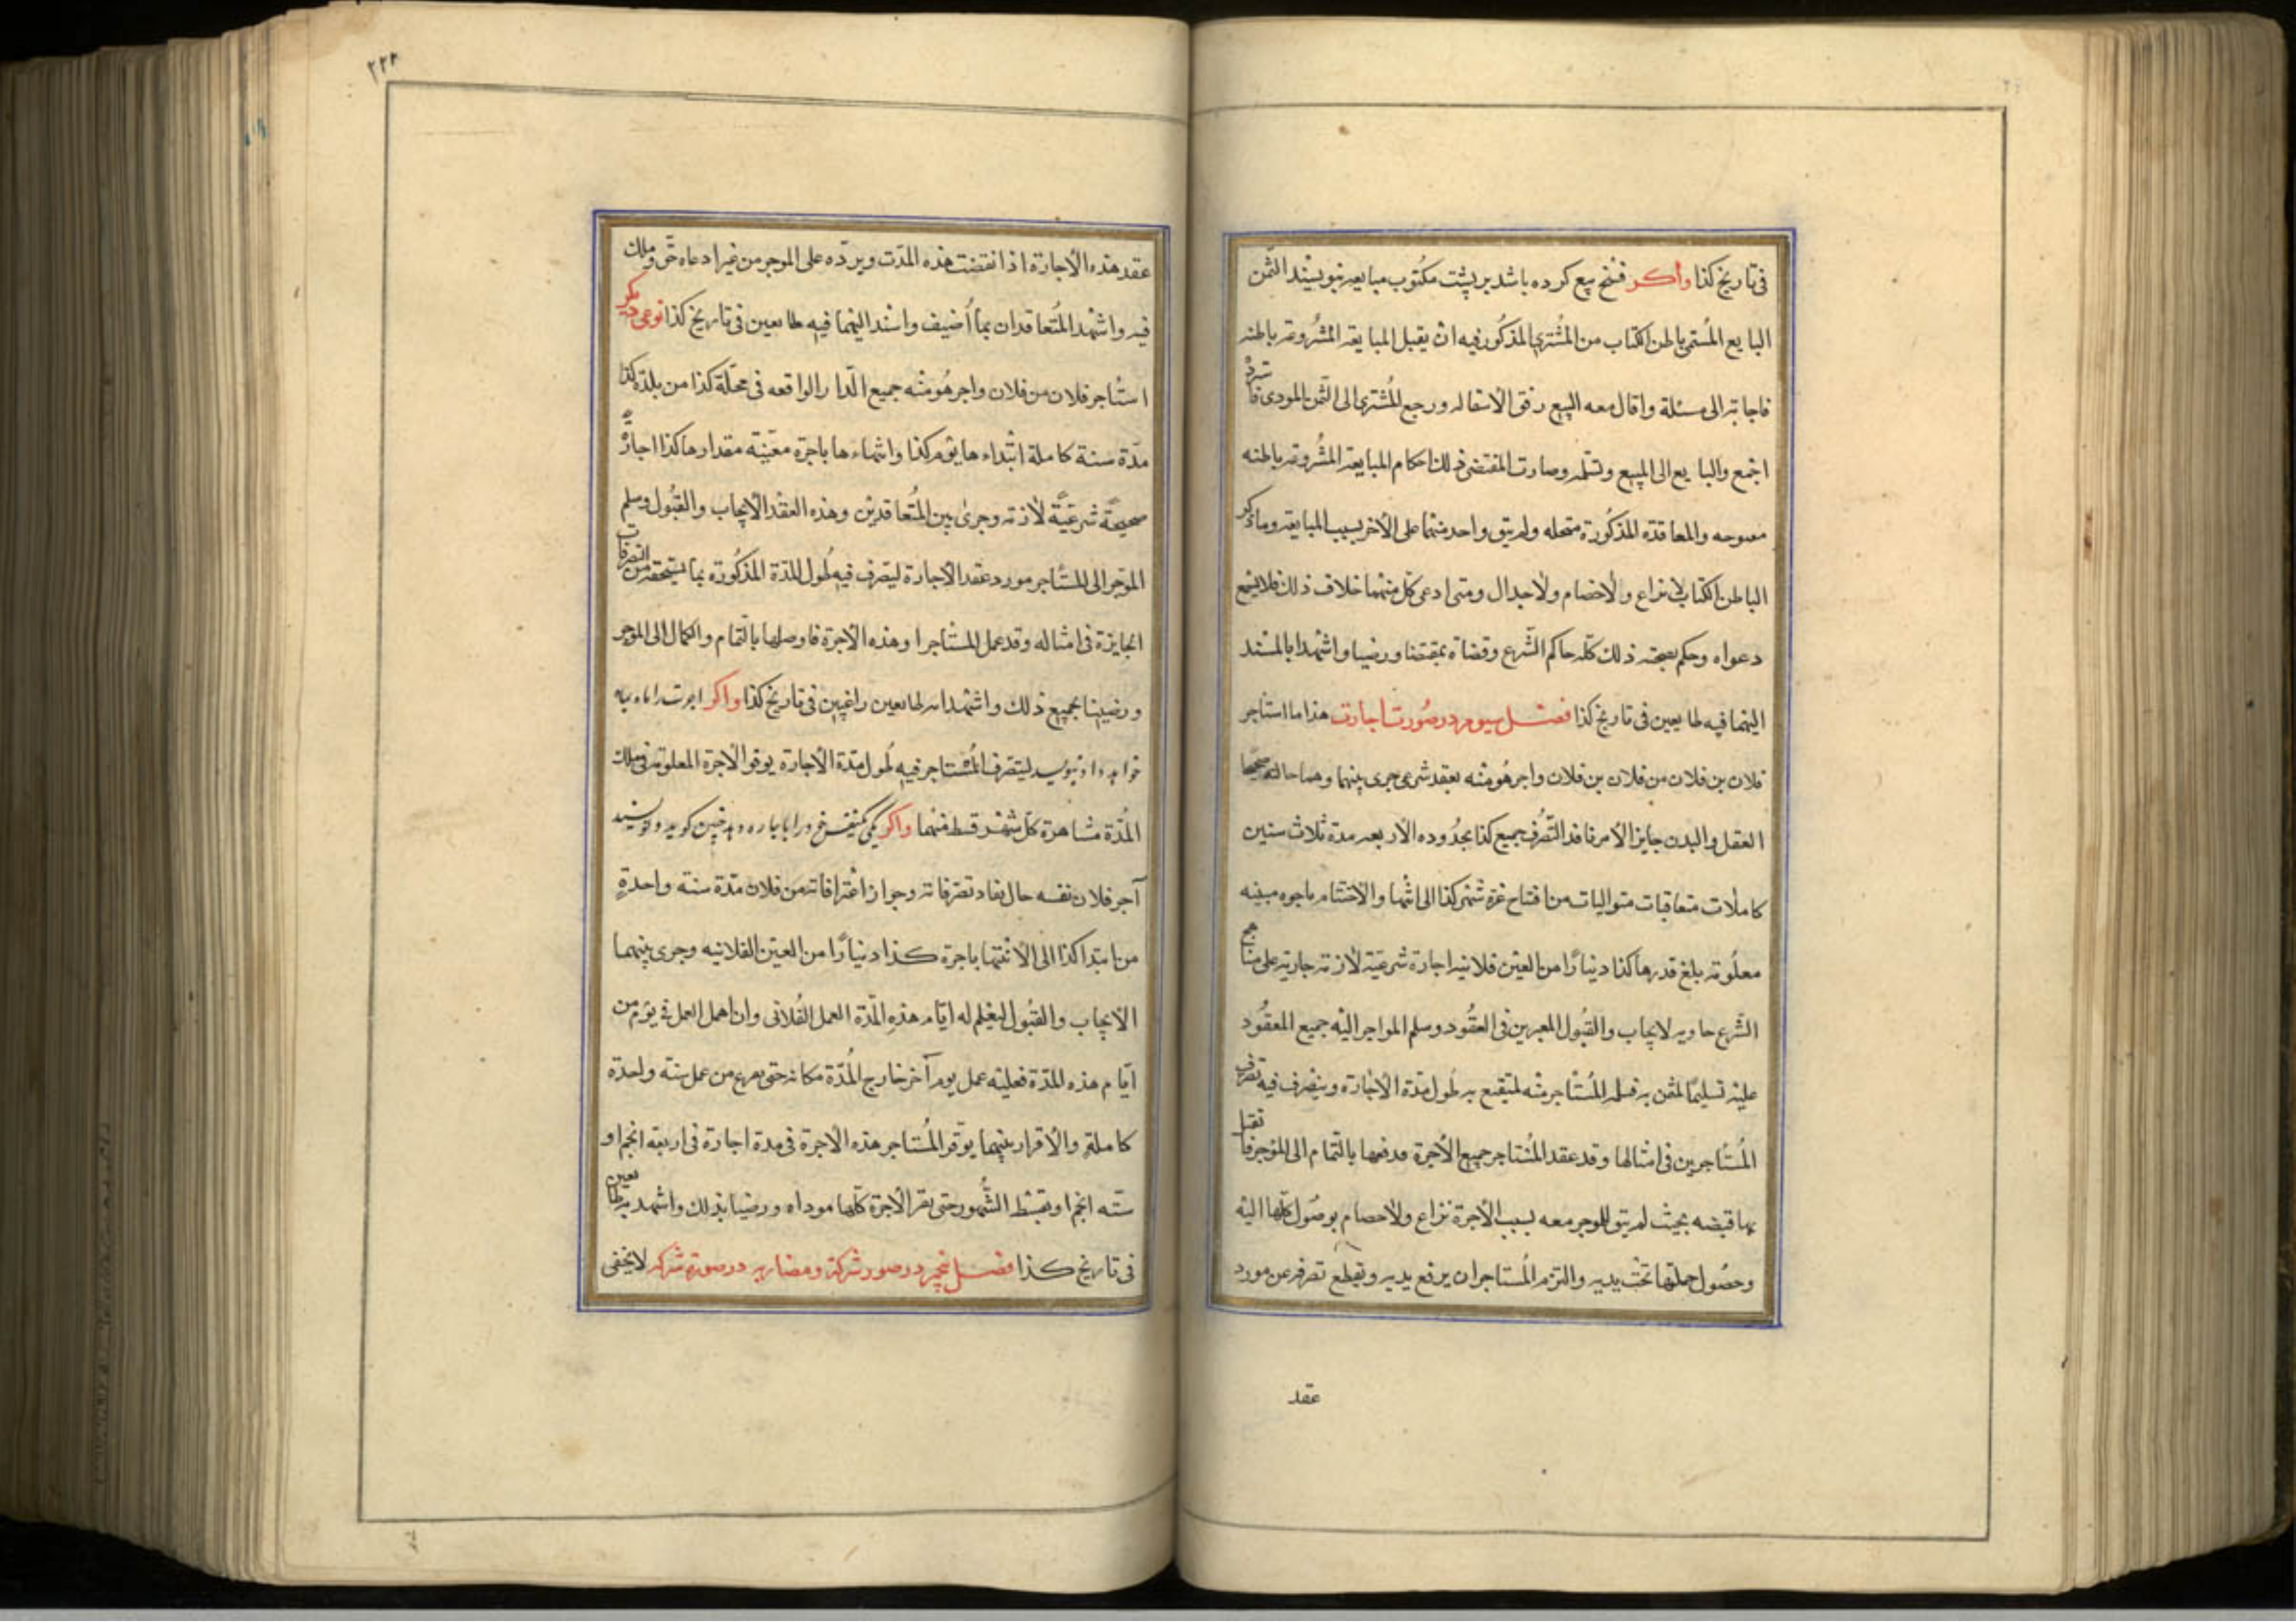 فی تاریخ کذا واکر فسخ بیع کرده باشد بر پشت مکتوب مبایعه بنویسند الثمن
البایع المُسمی باطن الکتاب من المُشتری المذکور فیه ان یقبل المبایعة المشروحة باطنه
فاجابته الی مسئلة واقال معه البیع رفق الاستقاله ورجع المُشتری الی الثمن المودی فاسترده
اجمع والبایع الی المبیع وتسلمه وصارت المقتضی ذلک احکام المبایعة المشروحة باطنه
والمعاقدة المذکورة منحله ولم یبق واحد منهما علی الآخر بسبب المبایعة وما ذکر
الباطن الکتاب لا نزاع ولا خصام ولا جدال ومتی ادعی کل منهما خلاف ذلک فلا یسمع
دعواه وحکم بصحته ذلک کله حاکم الشرع وقضاة بمقتضا ورضیا واشهدا بالمسند
الیهما فیه طایعین فی تاریخ کذا فصل سیوم در صورت اجارت هذا ما استاجر
فلان بن فلان من فلان بن فلان واجر هُو منه بعقد شرعی جری بینهما وهما حالة صحیحا
العقل والبدن جایز الامر نافذ التصُرف جمیع کذا بحدُوده الاربعه مدة ثلاث سنین
کاملات متعاقبات متوالیات من افتتاح غرة شهر کذا الی انتها والاختتام باجره مبینه
معلُومة بلغ قدرها کذا دینارًا من العین فلانیه اجارة شرعیة لازمة جاریة علی مناهج
الشرع حاویه لایجاب والقبُول المعبرین فی العقُود وسلم المواجر الیه جمیع المعقُود
علیه تسلیمًا لمثن به فسلمه المُستاجر منه لینتفع به طول مدة الاجارة ویتصرف فیه تصرف
المُستاجرین فی امثالها وقد عقد المُستاجر جمیع الاجرة ودفعها بالتمام الی المُوجر فا تقبل
بها قبضه بحیث لم یبق للوجر معه بسبب الاجرة نزاع ولا خصام بوصُول کلها الیه
وحصُول جملتها تحت یدیه والتزم المُستاجر ان یرفع یدیه ویقطع تصرفه عن مورد
عقد
۲۲۲
عقد هذه الاجارة اذا انقضت هذه المدت ویردّه علی الموجر من غیر ادعاه حق وملک
فیه واشهد المتُعاقدان بما اُضیف واسند الیهما فیه طایعین فی تاریخ کذا نوعی دیکر
استاجر فلان من فلان واجر هُو منه جمیع الدار الواقعه فی محلة کذا من بلدة کذا
مدّة سنة کاملة ابتداء ها یوم کذا وانتهاء ها باجرة معینة مقدارها کذا اجارةً
صحیحةً شرعیّةً لازمة وجری بین المُتعاقدین وهذه العقد الایجاب والقبُول وسلم
الموجر الی المستاجر مورد عقد الاجارة لیتصرف فیه طُول المدة المذکُورة بما یستحقه من التصرفات
الجایزة فی امثاله وقد عمل المستاجرا وهذه الاجرة فاوصلها بالتمام والکمال الی الموجر
ورضیینا بجمیع ذلک واشهدا به طایعین راغبین فی تاریخ کذا واکر اجرت را ماه بماه
خواهد داد بنویسد لیتصرف المُستاجر فیه طُول مدة الاجارة یوفو الاجرة المعلومة فی تلک
المُدة مشاهرة کل شهر قسط منها واکر یکی کیفر خود را باجاره دهد چنین کوید و نویسند
آجر فلان نفسه حال نفاد تصرفاته وجواز اعترافاته من فلان مدة سنة واحدةٍ
من ابتدا کذا الی الانتها باجرة کذا دینارًا من العین الفلانیه وجری بینهما
الایجاب والقبُول لیعلم له ایام هذهِ المدّة العمل الفُلانی وان اهمل العمل فی یوم من
ایام هذه المدة فعلیه عمل یوم آخر خارج المُدّة مکانه حتی یفرغ من عمل سنة واحدة
کاملةٍ والاقرار بینهما یوفر المُستاجر هذه الاجرة فی مدة اجارة فی اربعة انجم او
ستّه انجم او یقسط الشُهور حتی الاجرة کلها موداه ورضیا بذلک واشهد به طایعین
فی تاریخ کذا فصل پنجم در صور شرکة ومضاربه در صورة شرکة لا یخفی